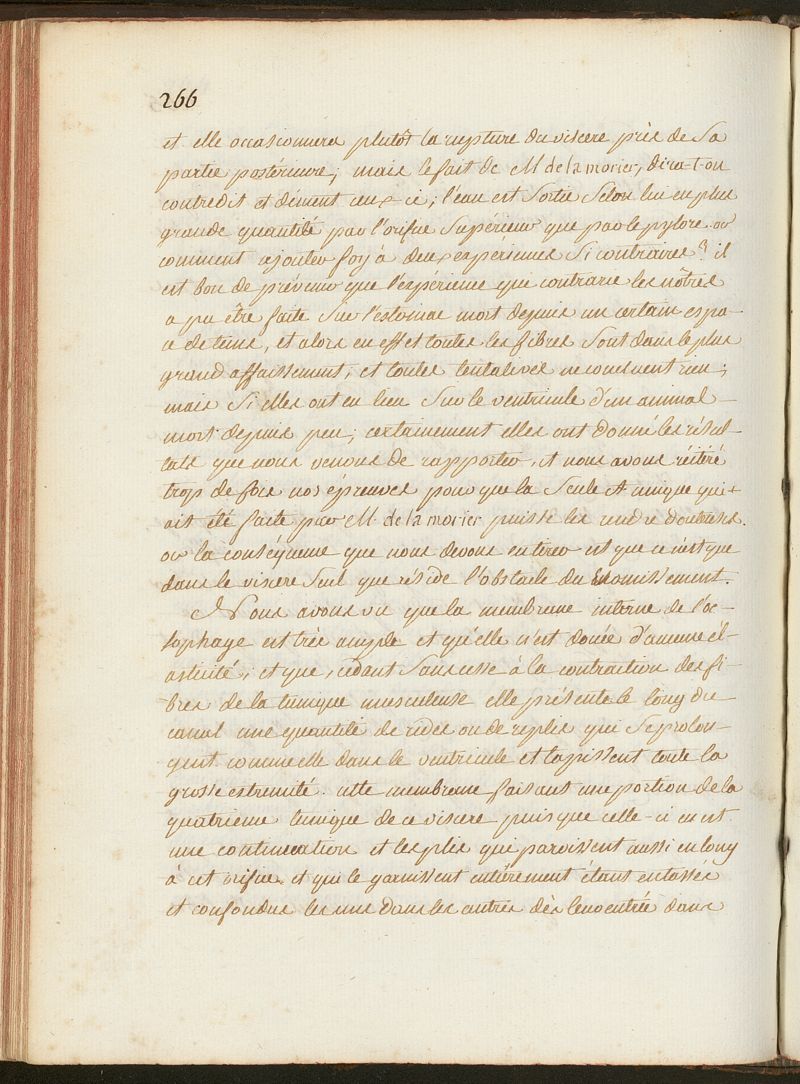 266
et elle occasionnera plutôt la rupture du viscere près de Sa
partie postérieure; mais le fait de M de lamorier, dira-t-on
contredit et dément ceux-ci; l'eau est Sortie Selon lui en plus
grande quantité par l'orifice Supérieur que par le pylore. or
comment ajouter foy à deux expériences Si contraires? il
est bon de prévenir que l'expérience qui contrarie les nôtres
a pu être faite Sur l'estomac mort depuis un certain espa-
ce de tems, et alors en effet toutes les fibres Sont dans le plus
grand affaissement, et toutes tentatives ne concluent rien;
mais Si elles ont eu lieu Sur le ventricule d'un animal
mort depuis peu, certainement elles ont donné les résul-
tats que nous venons de rapporter, et nous avons réitéré
trop de fois nos épreuves pour que la Seule et unique qui
ait été faite par M. de lamorier puisse les rendre douteuses.
or la conséquence que nous devons en tirer est que ce n'est que
dans le viscere Seul que réside l'obstacle du vomissement.
Nous avons vu que la membrane interne de l'oe-
sophage est très ample et qu'elle n'est douée d'aucune él-
asticité; et que, cédant Sans cesse à la contraction des fi-
bres de la tunique musculeuse elle présente le long du
canal une quantité de rides ou de replis qui Se prolon-
gent comme elle dans le ventricule et tapissent toute la
grosse extremité. cette membrane faisant une portion de la
quatrieme tunique de ce viscere puisque celle-ci en est
une continuation et les plis qui paroissent aussi en long
à cet orifice et qui le garnissent entièrement étant entassés
et confondus les uns dans les autres dès leur entrée dans